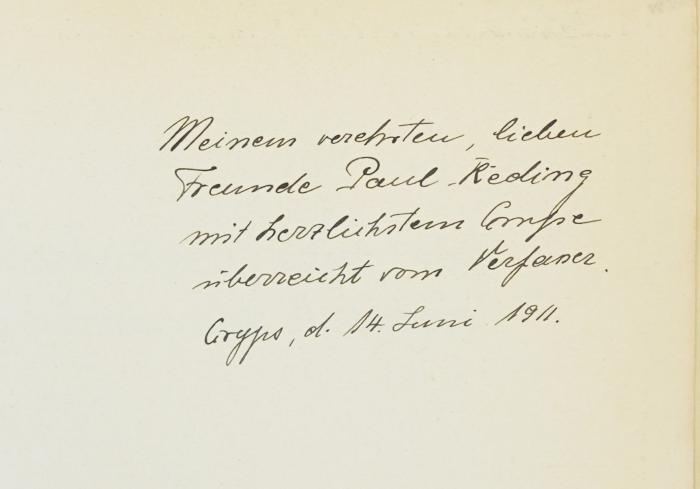 Meinem verehrten, lieben
Freunde Paul Reding
mit herzlichstem Grusse
überreicht vom Verfasser.
Gryps, d. 14. Juni 1911.